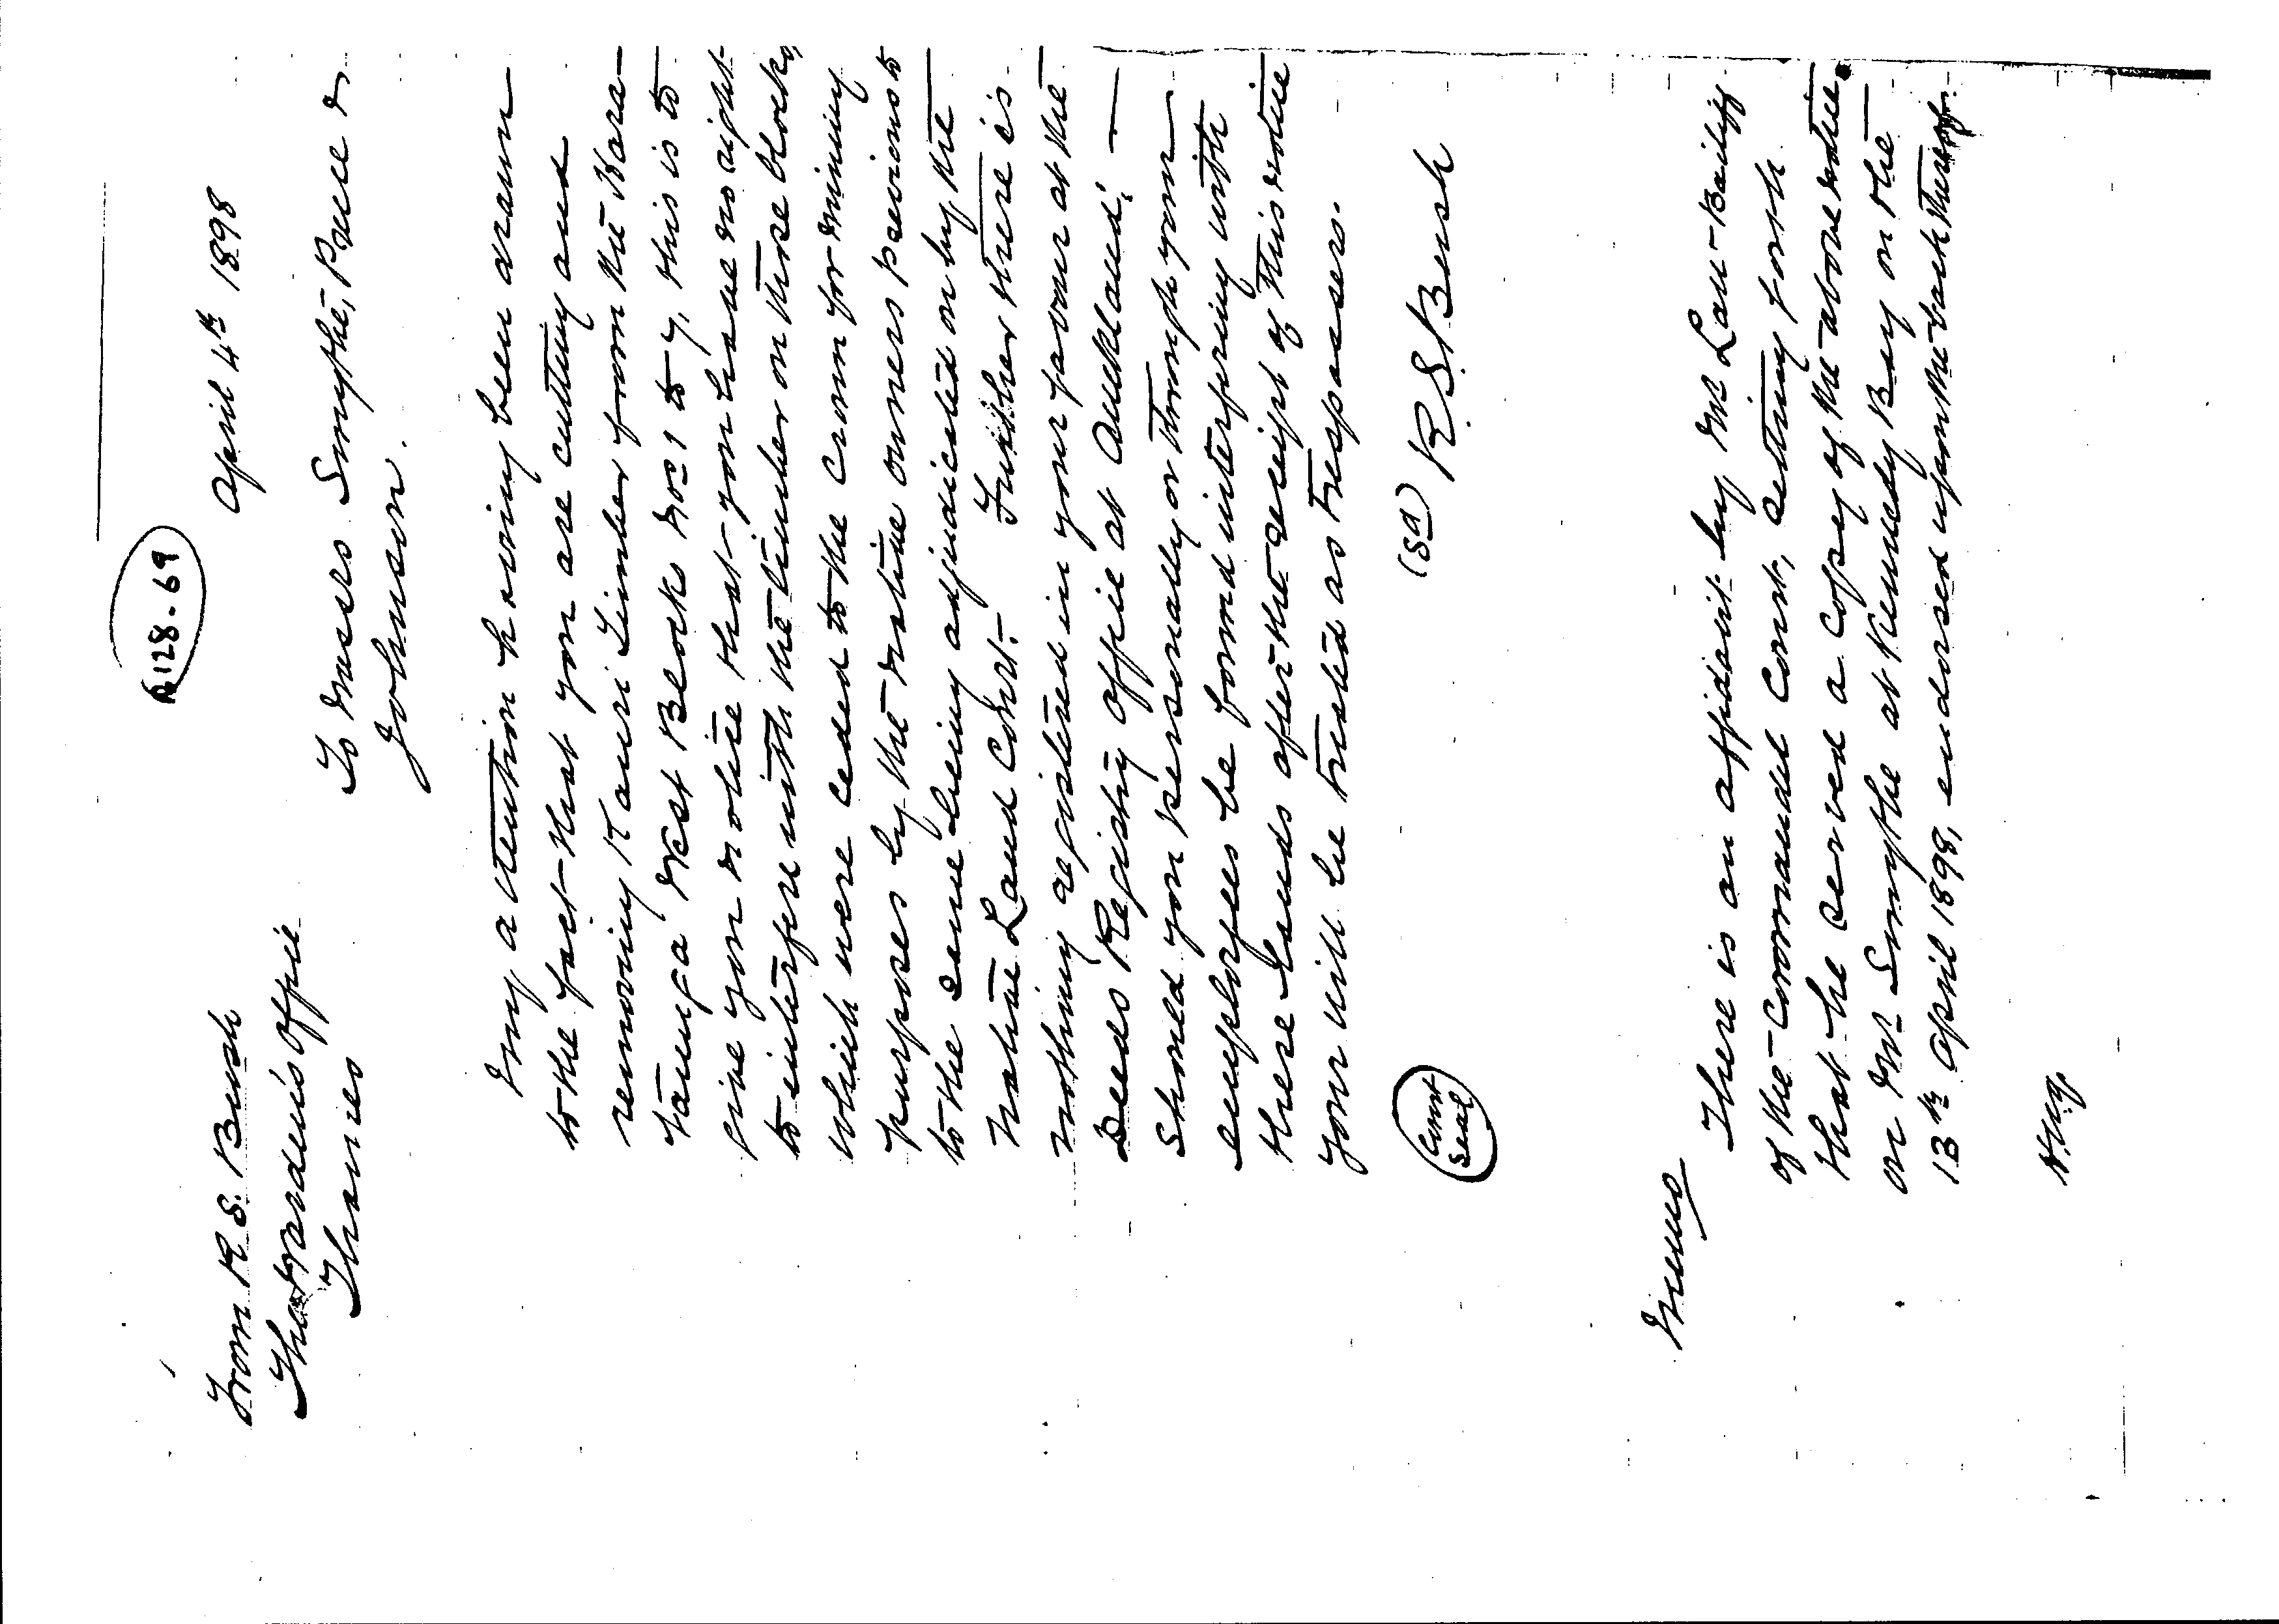 128.69
From R. S. Bush
April 4th 1898
The Warden's Office
Thames
To Messrs Smythe, Price &
Johnson.
My attention having been drawn
to the fact that you are cutting and
removing Kauri Timber from the Hara-
taunga West Blocks Nos 1 to 7, this is to
give you notice that you have no right
to interfere with the timber on these blocks,
which were ceded to the Crown for mining
purposes by the native owners previous to
to the same being adjudicated on by the
Native Land Court. Further there is
nothing registered in your favour at the
Deeds Registry Office at Auckland,
Should you personally or through your
employees be found interfering with
these lands after the receipt of this notice
you will be treated as trespassers.
(Sd) R S Bush
Court
Seal
Memo
There is an affidavit by Mr Law - Bailiff
of the Coromandel Court, setting forth
that he served a copy of the above notice
on Mr Smythe at Kennedy Bay on the
13th April 1898, endorsed upon the back thereof.